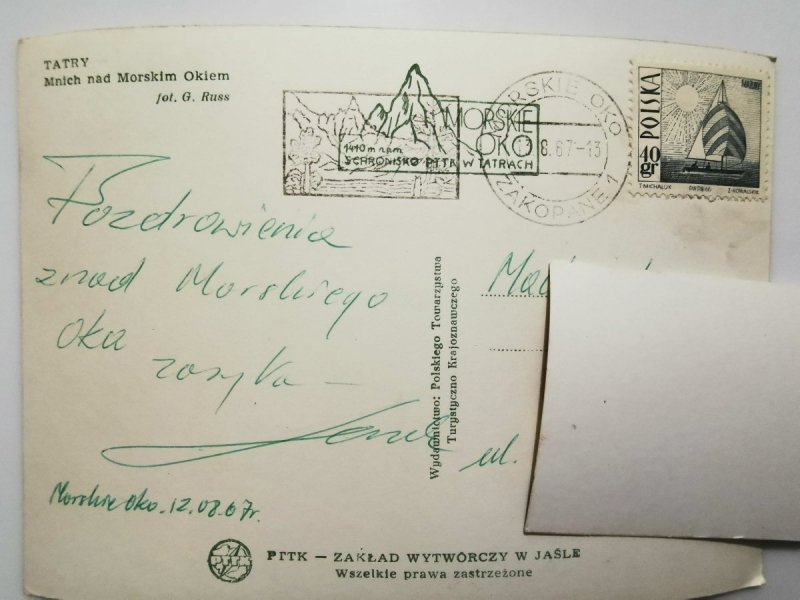 TATRY
Mnich nad Morskim Okiem
fot. G. Russ
MORSKIE
OKO
1410 m n.p.m
SCHRONISKO PTTK W TATRACH
MORSKIE OKO
8.67-13
ZAKOPANE 1
POLSKA
40 gr
T. MICHALUK
Pozdrowienia
znad Morskiego
Oka
zasyła —
Wydawnictwo: Polskiego Towarzystwa
Turystyczno Krajoznawczego
ul.
Morskie Oko. 12.08.67r.
PTTK — ZAKŁAD WYTWÓRCZY W JAŚLE
Wszelkie prawa zastrzeżone